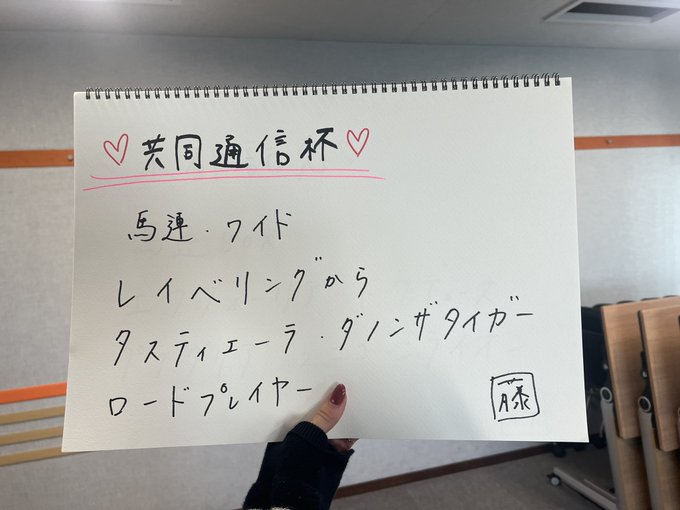 ♡共同通信杯♡
馬連・ワイド
レイベリングから
タスティエーラ・ダノンザタイガー
ロードプレイヤー
藤